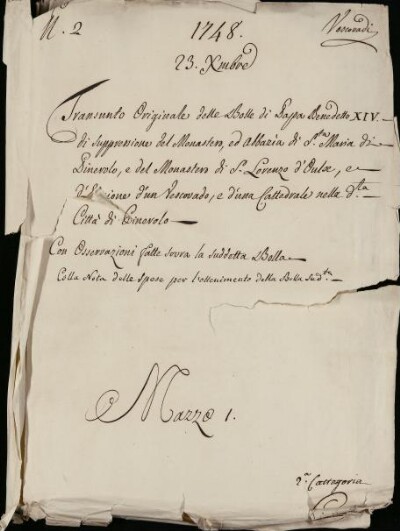 N. 2
1748.
Vescovadi
23. Xmbre
Transunto Originale delle Bolle di Papa Benedetto XIV.
di Suppressione del Monastero, ed Abbazia di S.ta Maria di
Pinerolo, e del Monastero di S. Lorenzo d'Oulx, e
d'Erezione d'un Vescovado, e d'una Cattedrale nella d.ta
Città di Pinerolo
Con Osservazioni fatte sovra la suddetta Bolla
Colla Nota delle Spese per l'ottenimento della Bolla Sud.ta
Mazzo 1.
2.a Cattegoria